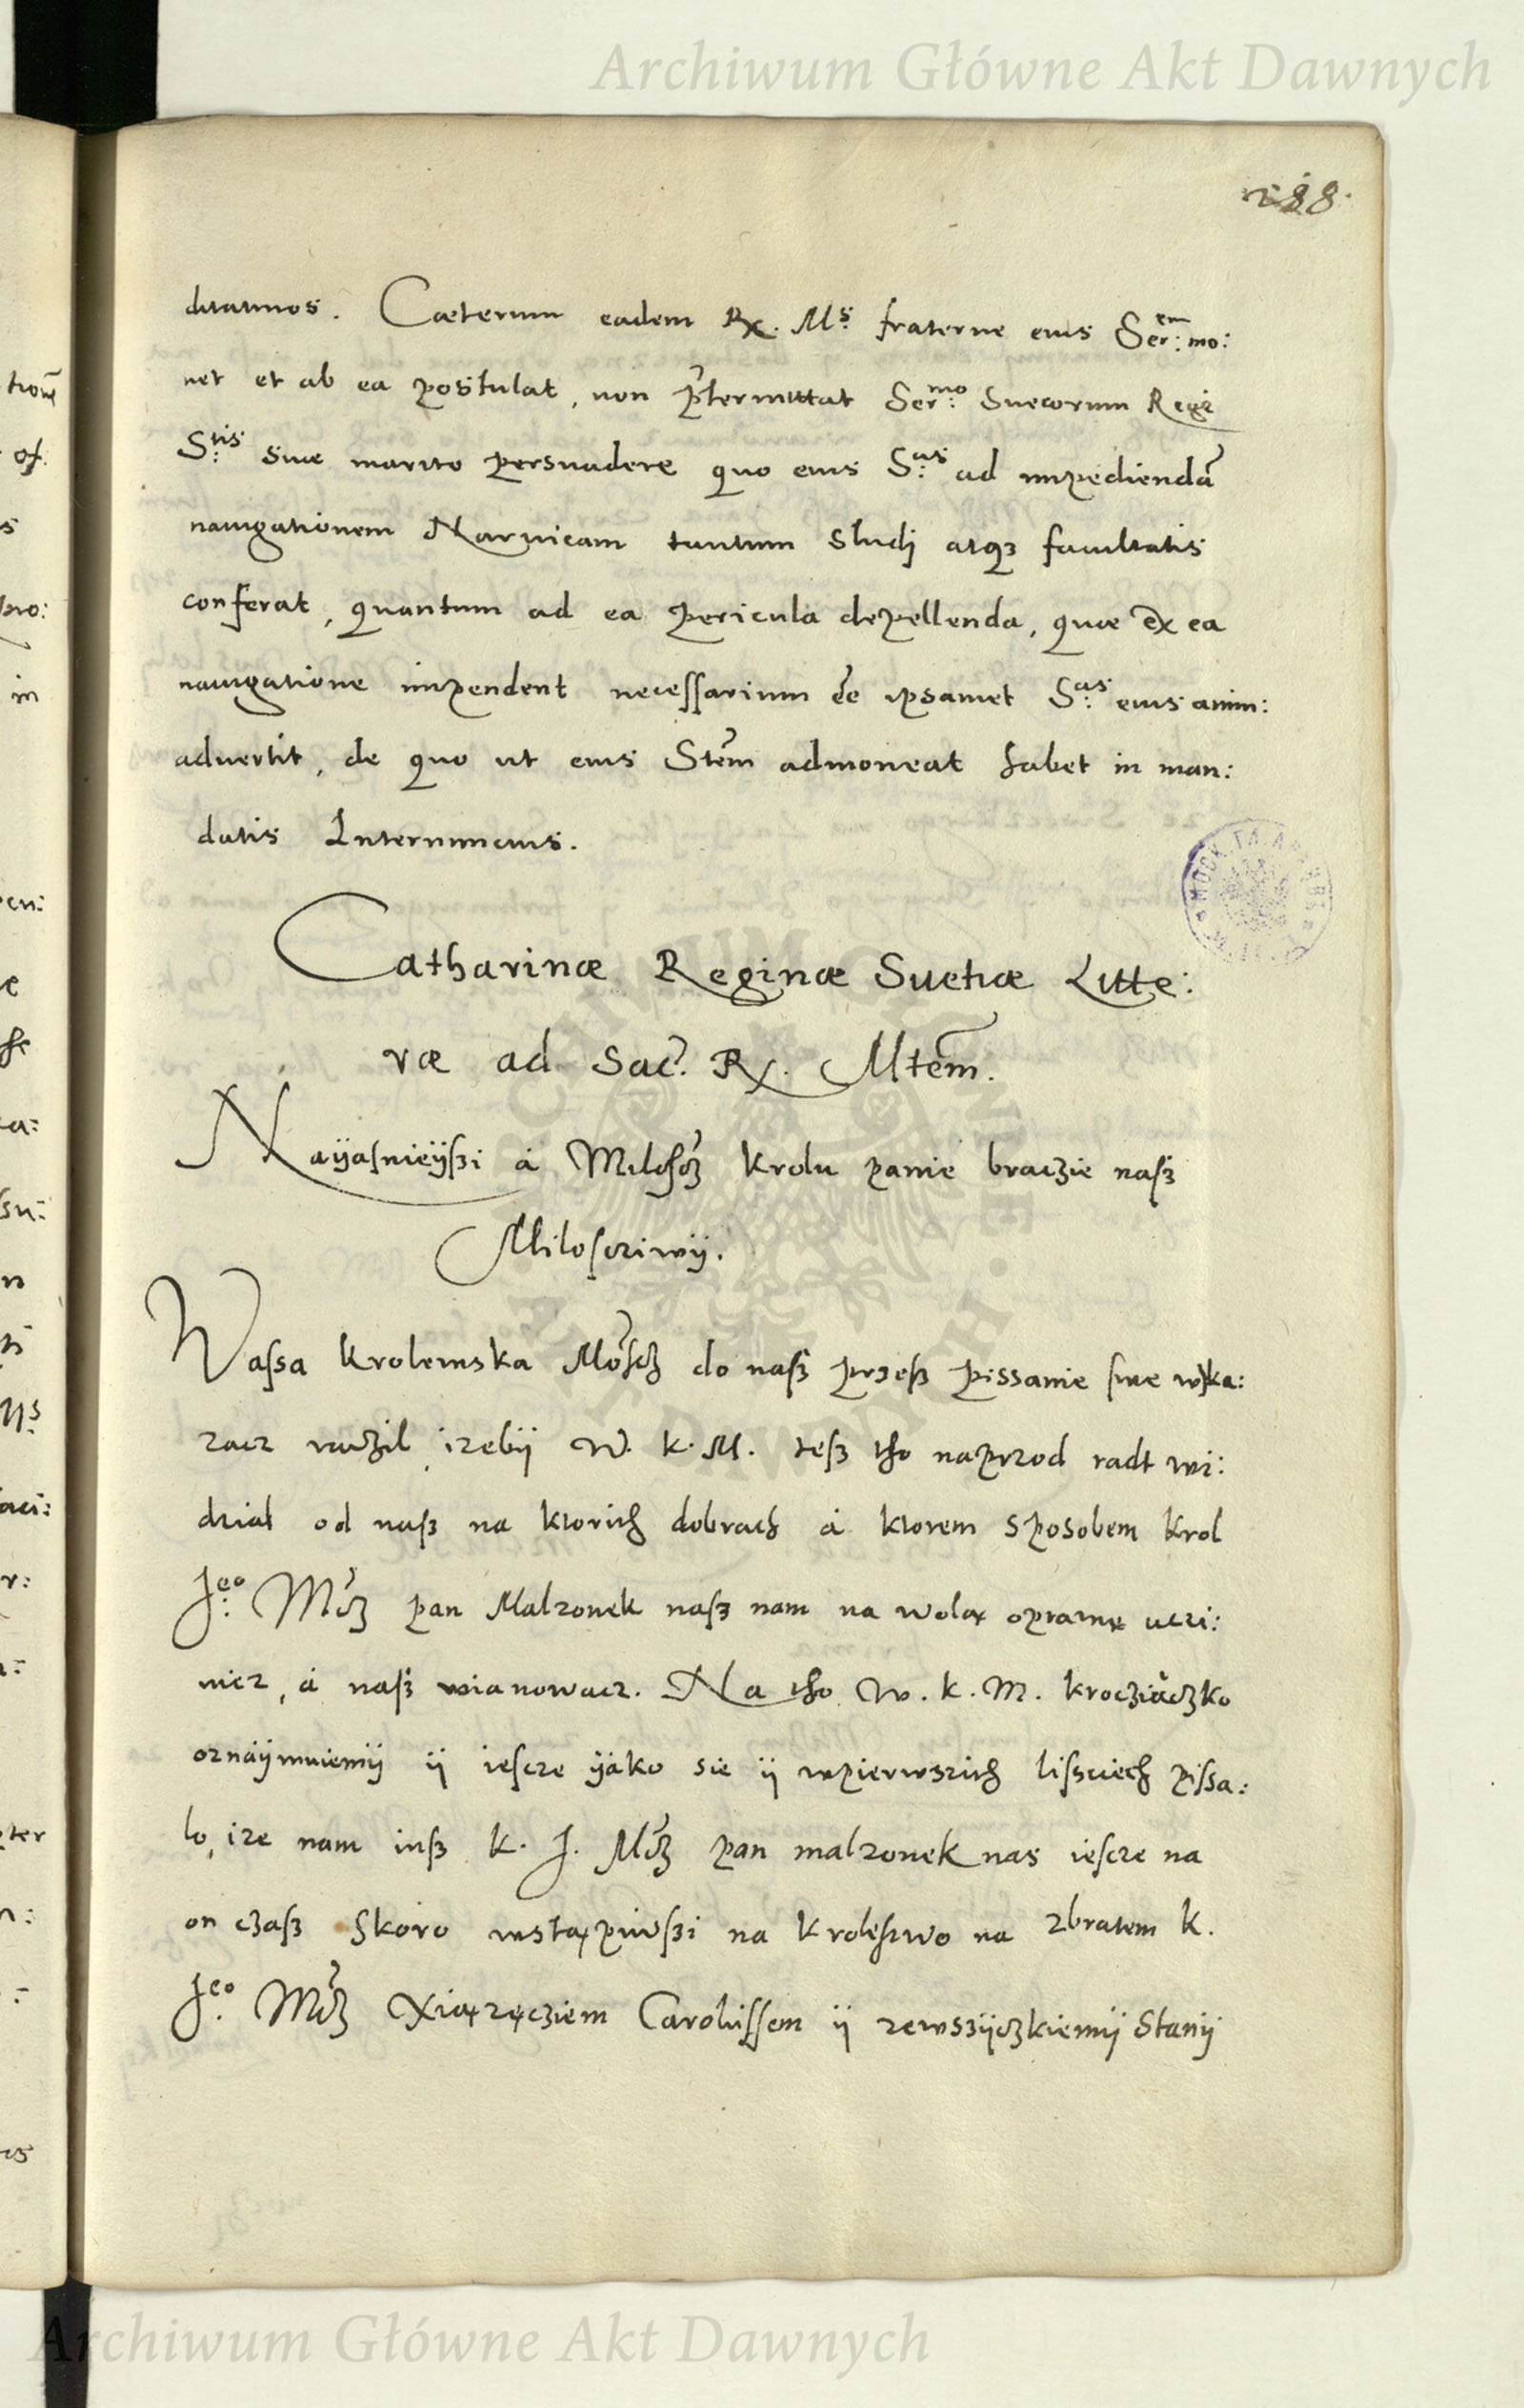 Archiwum Główne Akt Dawnych
188.
Cæterum eadem Rx. Ms. fraterne eius Ser:em mo:
net et ab ea postulat, non p̃termittat Ser:mo Suecorum Regi
S:tis suæ marito persuadere quo eius S:as ad impediendã
nauigationem Naruicam tantum studij atq3 facultatis
conferat, quantum ad ea pericula depellenda, quæ ex ea
nauigatione impendent necessarium ẽe ipsamet S:as eius anim:
aduertit, de quo ut eius Stem̃ admoneat habet in man:
datis Internuncius.
Catharinæ Reginæ Suetiæ Litte:
ræ ad Sac̃. Rx. Mtem̃.
Nayiasnieÿssi á Miloscz̃ Krolu panie braczie nasz
Milosciwÿ.
Wassa Krolewska Moscz̃ do nasz przesz pissanie swe wska:
zacz raczil, izebÿ W. K. M. tesz tho naprzod radt wi:
dzial od nasz na ktorich dobrach á ktorem sposobem Krol
J:eo Mcz̃ pan Malzonek nasz nam na wolą oprawę uczi:
nicz, á nasz wianowacz. Na tho W. K. M. krocziáczko
oznáÿmuiemÿ ÿ iescze ÿáko sie ÿ wpierwszich lissciech pissa:
lo, ize nam iusz K. J. Mcz̃ pan malzonek nas iescze na
on czasz skoro wstąpiwszi na Krolestwo na zbratem K.
J:eo Mcz̃ Xiązęcziem Carolussem ÿ zewszÿczkiemÿ Stanÿ
Archiwum Główne Akt Dawnych